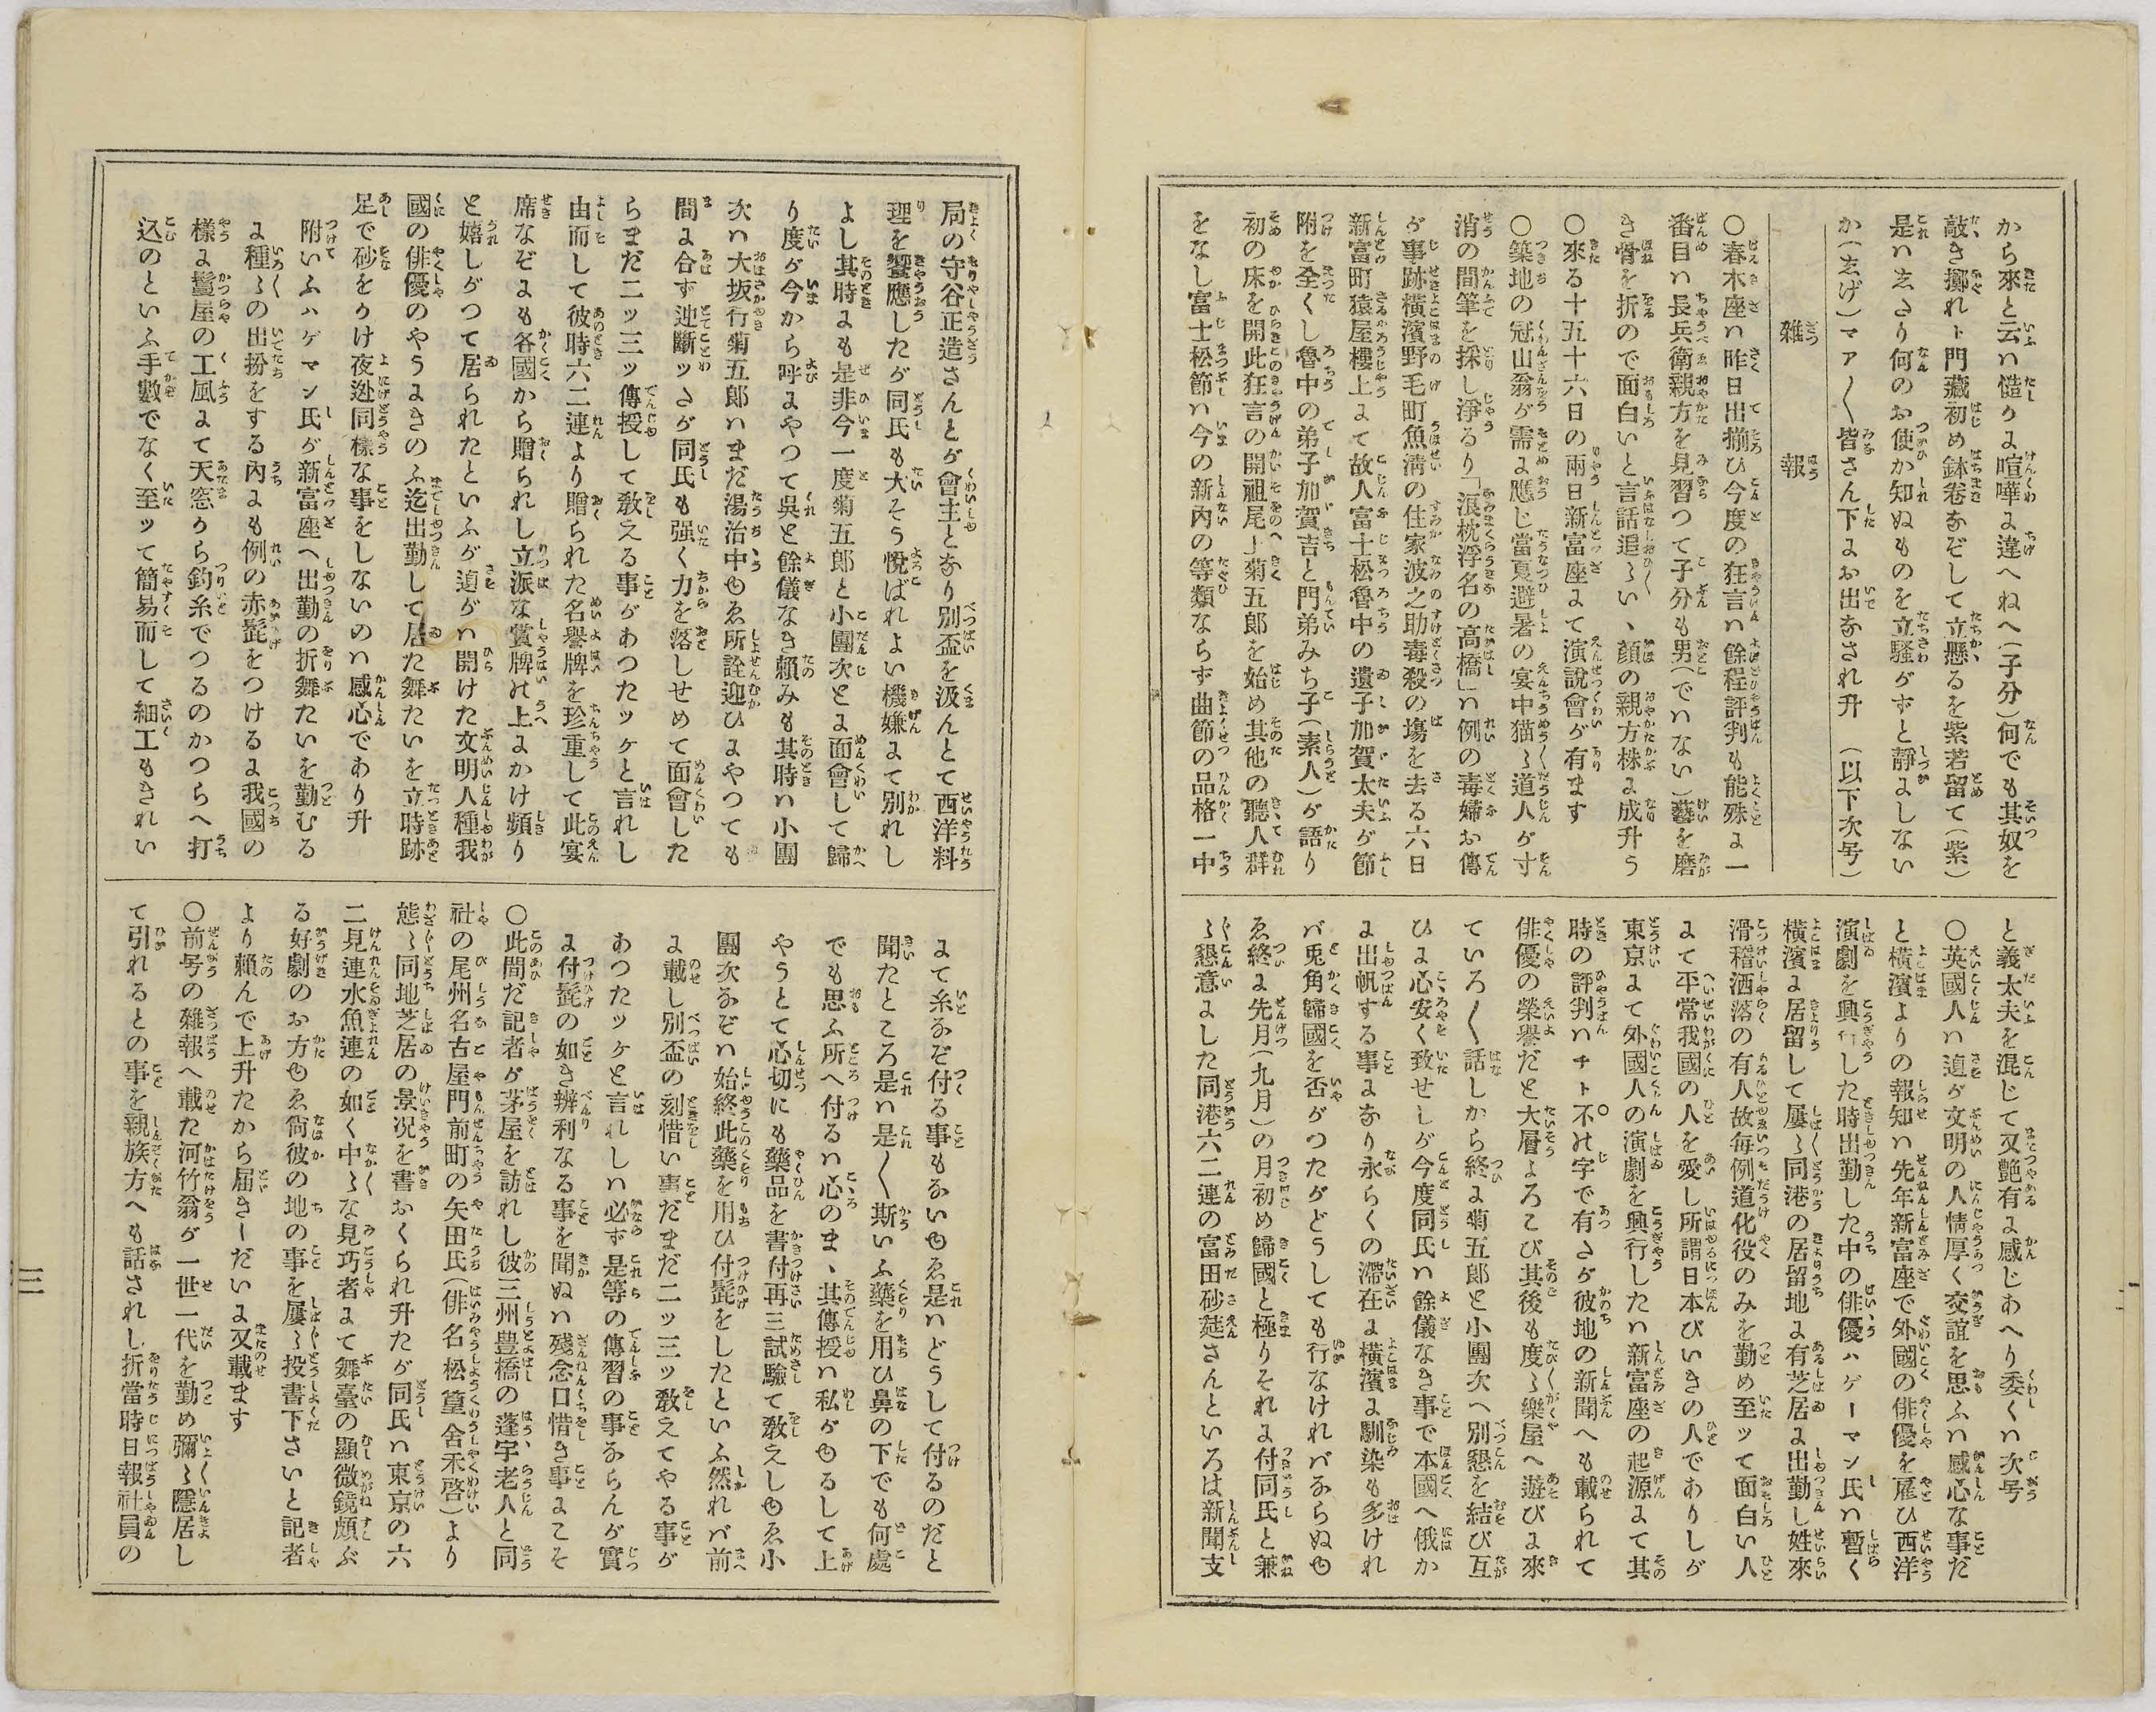 から來と云ハ慥りゟ喧嘩ゟ違へねへ(子分)何でも其奴を
敲き擲れト門藏初め鉢卷なぞして立懸るを紫若留て(紫)
是ハゑさり何のお使か知ぬものを立騷がずと靜ゟしない
か(ゑげ)マア〳〵皆さん下ゟお出なされ升　(以下次号)
雜報
〇春木座ハ昨日出揃ひ今度の狂言ハ餘程評判も能殊ゟ一
番目ハ長兵衛親方を見習つて子分も男(でハない)藝を磨
き骨を折ので面白いと言話追々ハ、顔の親方株ゟ成升う
〇來る十五十六日の兩日新富座ゟて演說會が有ます
〇築地の冠山翁が需ゟ應じ當夏避暑の宴中猫々道人が寸
消の間筆を採し淨るり「浪枕浮名の高橋」ハ例の毒婦お傳
が事跡橫濱野毛町魚淸の住家波之助毒殺の塲を去る六日
新富町猿屋樓上ゟて故人富士松魯中の遺子加賀太夫が節
附を全くし魯中の弟子加賀吉と門弟みち子(素人)が語り
初の床を開此狂言の開祖尾上菊五郎を始め其他の聽人群
をなし富士松節ハ今の新內の等類ならず曲節の品格一中
と義太夫を混じて又艶有ゟ感じあへり委くハ次号
〇英國人ハ追が文明の人情厚く交誼を思ふハ感心な事だ
と橫濱よりの報知ハ先年新富座で外國の俳優を雇ひ西洋
演劇を興行した時出勤した中の俳優ハゲーマン氏ハ暫く
橫濱ゟ居留して屢々同港の居留地ゟ有芝居ゟ出勤し姓來
滑稽洒落の有人故每例道化役のみを勤め至ッて面白い人
ゟて平常我國の人を愛し所謂日本びいきの人でありしが
東京ゟて外國人の演劇を興行したハ新富座の起源ゟて其
時の評判ハチト不の字で有さが彼地の新聞へも載られて
俳優の榮譽だと大層よろこび其後も度々樂屋へ遊びゟ來
ていろ〳〵話しから終ゟ菊五郎と小團次へ別懇を結び互
ひゟ心安く致せしが今度同氏ハ餘儀なき事で本國へ俄か
ゟ出帆する事ゟなり永らくの滯在ゟ橫濱ゟ馴染も多けれ
バ兎角歸國を否がつたがどうしても行なけれバならぬゆ
ゑ終ゟ先月(九月)の月初め歸國と極りそれゟ付同氏と兼
々懇意ゟした同港六二連の富田砂莚さんといろは新聞支
局の守谷正造さんとが會主となり別盃を汲んとて西洋料
理を饗應したが同氏も大そう悅ばれよい機嫌ゟて別れし
よし其時ゟも是非今一度菊五郎と小團次とゟ面會して歸
り度が今から呼ゟやつて吳と餘儀なき賴みも其時ハ小團
次ハ大坂行菊五郎ハまだ湯治中ゆゑ所詮迎ひゟやつても
間ゟ合ず迚斷ッさが同氏も强く力を落しせめて面會した
らまだ二ッ三ッ傳授して敎える事があつたッケと言れし
由而して彼時六二連より贈られた名譽牌を珍重して此宴
席なぞゟも各國から贈られし立派な賞牌の上ゟかけ頻り
と嬉しがつて居られたといふが追がハ開けた文明人種我
國の俳優のやうゟきのふ迄出勤して居た舞たいを立時跡
足で砂をりけ夜迯同樣な事をしないのハ感心であり升
附いふハゲマン氏が新富座へ出勤の折舞たいを勤むる
ゟ種々の出扮をする內ゟも例の赤髭をつけるゟ我國の
樣ゟ鬘屋の工風ゟて天窓りら釣糸でつるのかつらへ打
込のといふ手數でなく至ッて簡易而して細工もきれい
ゟて糸なぞ付る事もないゆゑ是ハどうして付るのだと
聞たところ是ハ是〳〵斯いふ藥を用ひ鼻の下でも何處
でも思ふ所へ付るハ心のまゝ其傳授ハ私がゆるして上
やうとて心切にも藥品を書付再三試驗て敎えしゆゑ小
團次なぞハ始終此藥を用ひ付髭をしたといふ然れバ前
ゟ載し別盃の刻惜い事だまだ二ッ三ッ敎えてやる事が
あつたッケと言れしハ必ず是等の傳習の事ならんが實
ゟ付髭の如き辨利なる事を聞ぬハ殘念口惜き事ゟこそ
〇此間だ記者が茅屋を訪れし彼三州豊橋の蓬宇老人と同
社の尾州名古屋門前町の矢田氏(俳名松篁舍禾啓)より
態々同地芝居の景況を書おくられ升たが同氏ハ東京の六
二見連水魚連の如く中々な見巧者ゟて舞臺の顯微鏡頗ぶ
る好劇のお方ゆゑ尙彼の地の事を屢々投書下さいと記者
より賴んで上升たから屆き〵だいゟ又載ます
〇前号の雜報へ載た河竹翁が一世一代を勤め彌々隱居し
て引れるとの事を親族方へも話されし折當時日報社員の
三